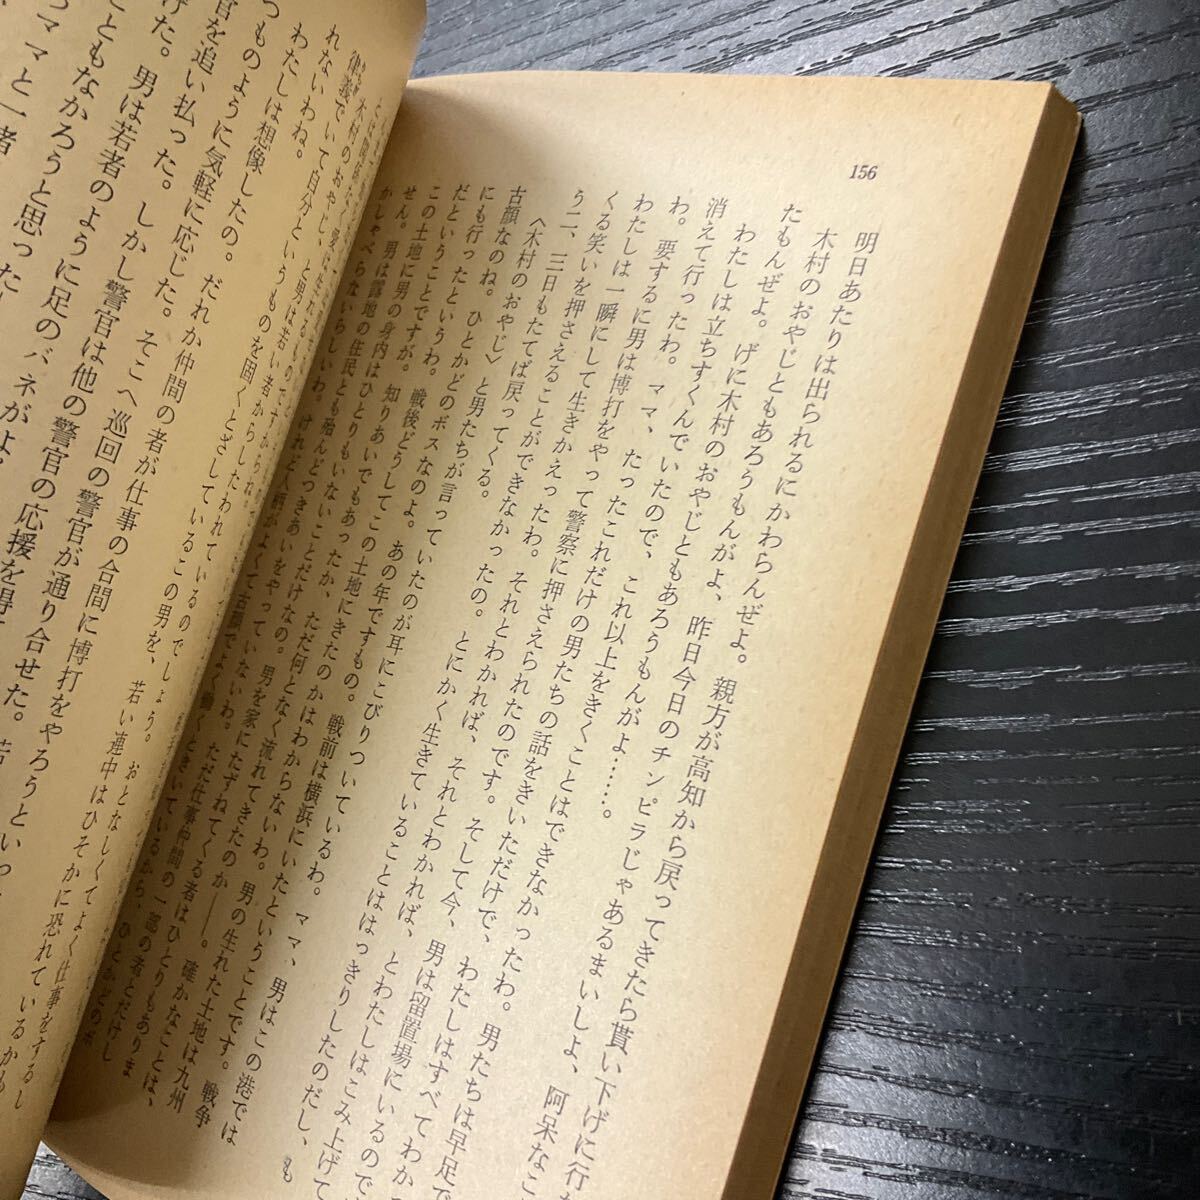 156
明日あたりは出られるにかわらんぜよ。親方が高知から戻ってきたら貰い下げに行
木村のおやじともあろうもんがよ、昨日今日のチンピラじゃあるまいしよ、阿呆なこ
たもんぜよ。げに木村のおやじともあろうもんがよ……。
わたしは立ちすくんでいたので、これ以上をきくことはできなかったわ。男たちは早足で
消えて行ったわ。ママ、たったこれだけの男たちの話をきいただけで、わたしはすべてわか
わ。要するに男は博打をやって警察に押さえられたのです。そして今、男は留置場にいるので
わたしは一瞬にして生きかえったわ。それとわかれば、それとわかれば、とわたしはこみ上げて
くる笑いを押さえることができなかったの。とにかく生きていることははっきりしたのだし、も
う二、三日もたてば戻ってくる。
〈木村のおやじ〉と男たちが言っていたのが耳にこびりついているわ。ママ、男はこの港では
古顔なのね。ひとかどのボスなのよ。あの年ですもの。戦前は横浜にいたということです。戦争
にも行ったというわ。戦後どうしてこの土地にきたのかはわからないわ。男の生れた土地は九州
だということですが。知りあいでもあったか、ただ何となく流れてきたのか――。確かなことは、
この土地に男の身内はひとりもいないことだけなの。男を家にたずねてくる者はひとりもありま
せん。男は露地の住民とも殆んどつきあいをやっていないわ。ただ仕事仲間の一部の者とだけし
かしゃべらないらしいわ。けれど人柄がよくて古顔でよく働くときいているから、ひとかどのボ
律義でいて自分というものを固くとざしているこの男を、若い連中はひそかに恐れているかも
れないわね。
わたしは想像したの。だれか仲間の者が仕事の合間に博打をやろうといっ
つものように気軽に応じた。そこへ巡回の警官が通り合せた。若
官を追い払った。しかし警官は他の警官の応援を得
けた。男は若者のように足のバネがよ
こともなかろうと思ったし
ママと一者